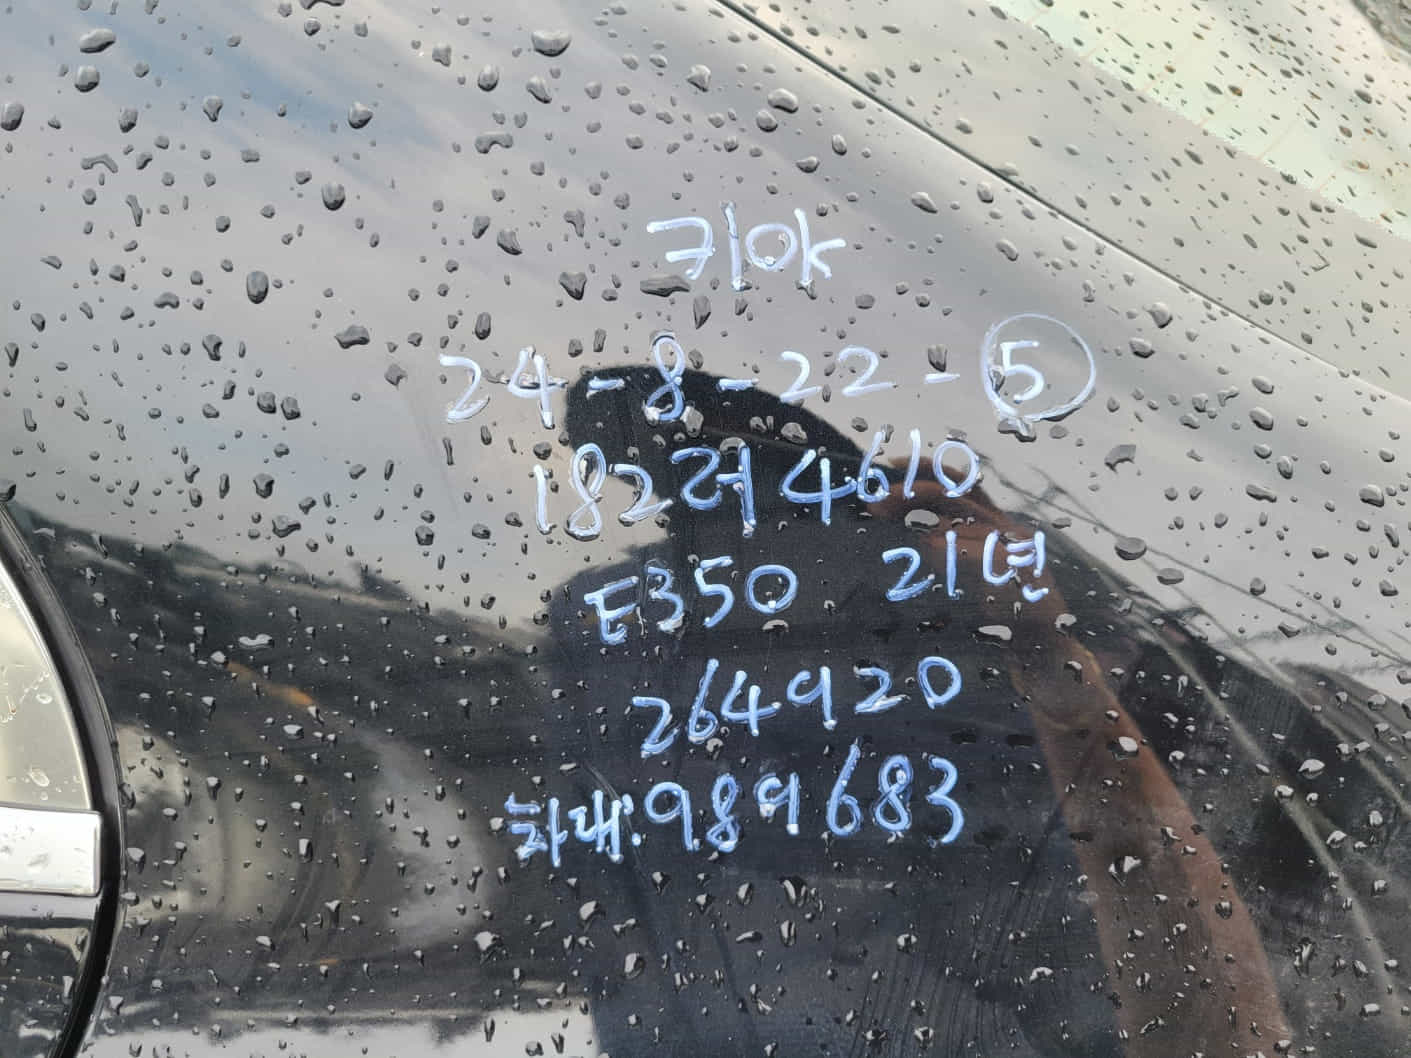 키O
24-8-22-⑤
182러4610
E350 21년
264920
차대:989683